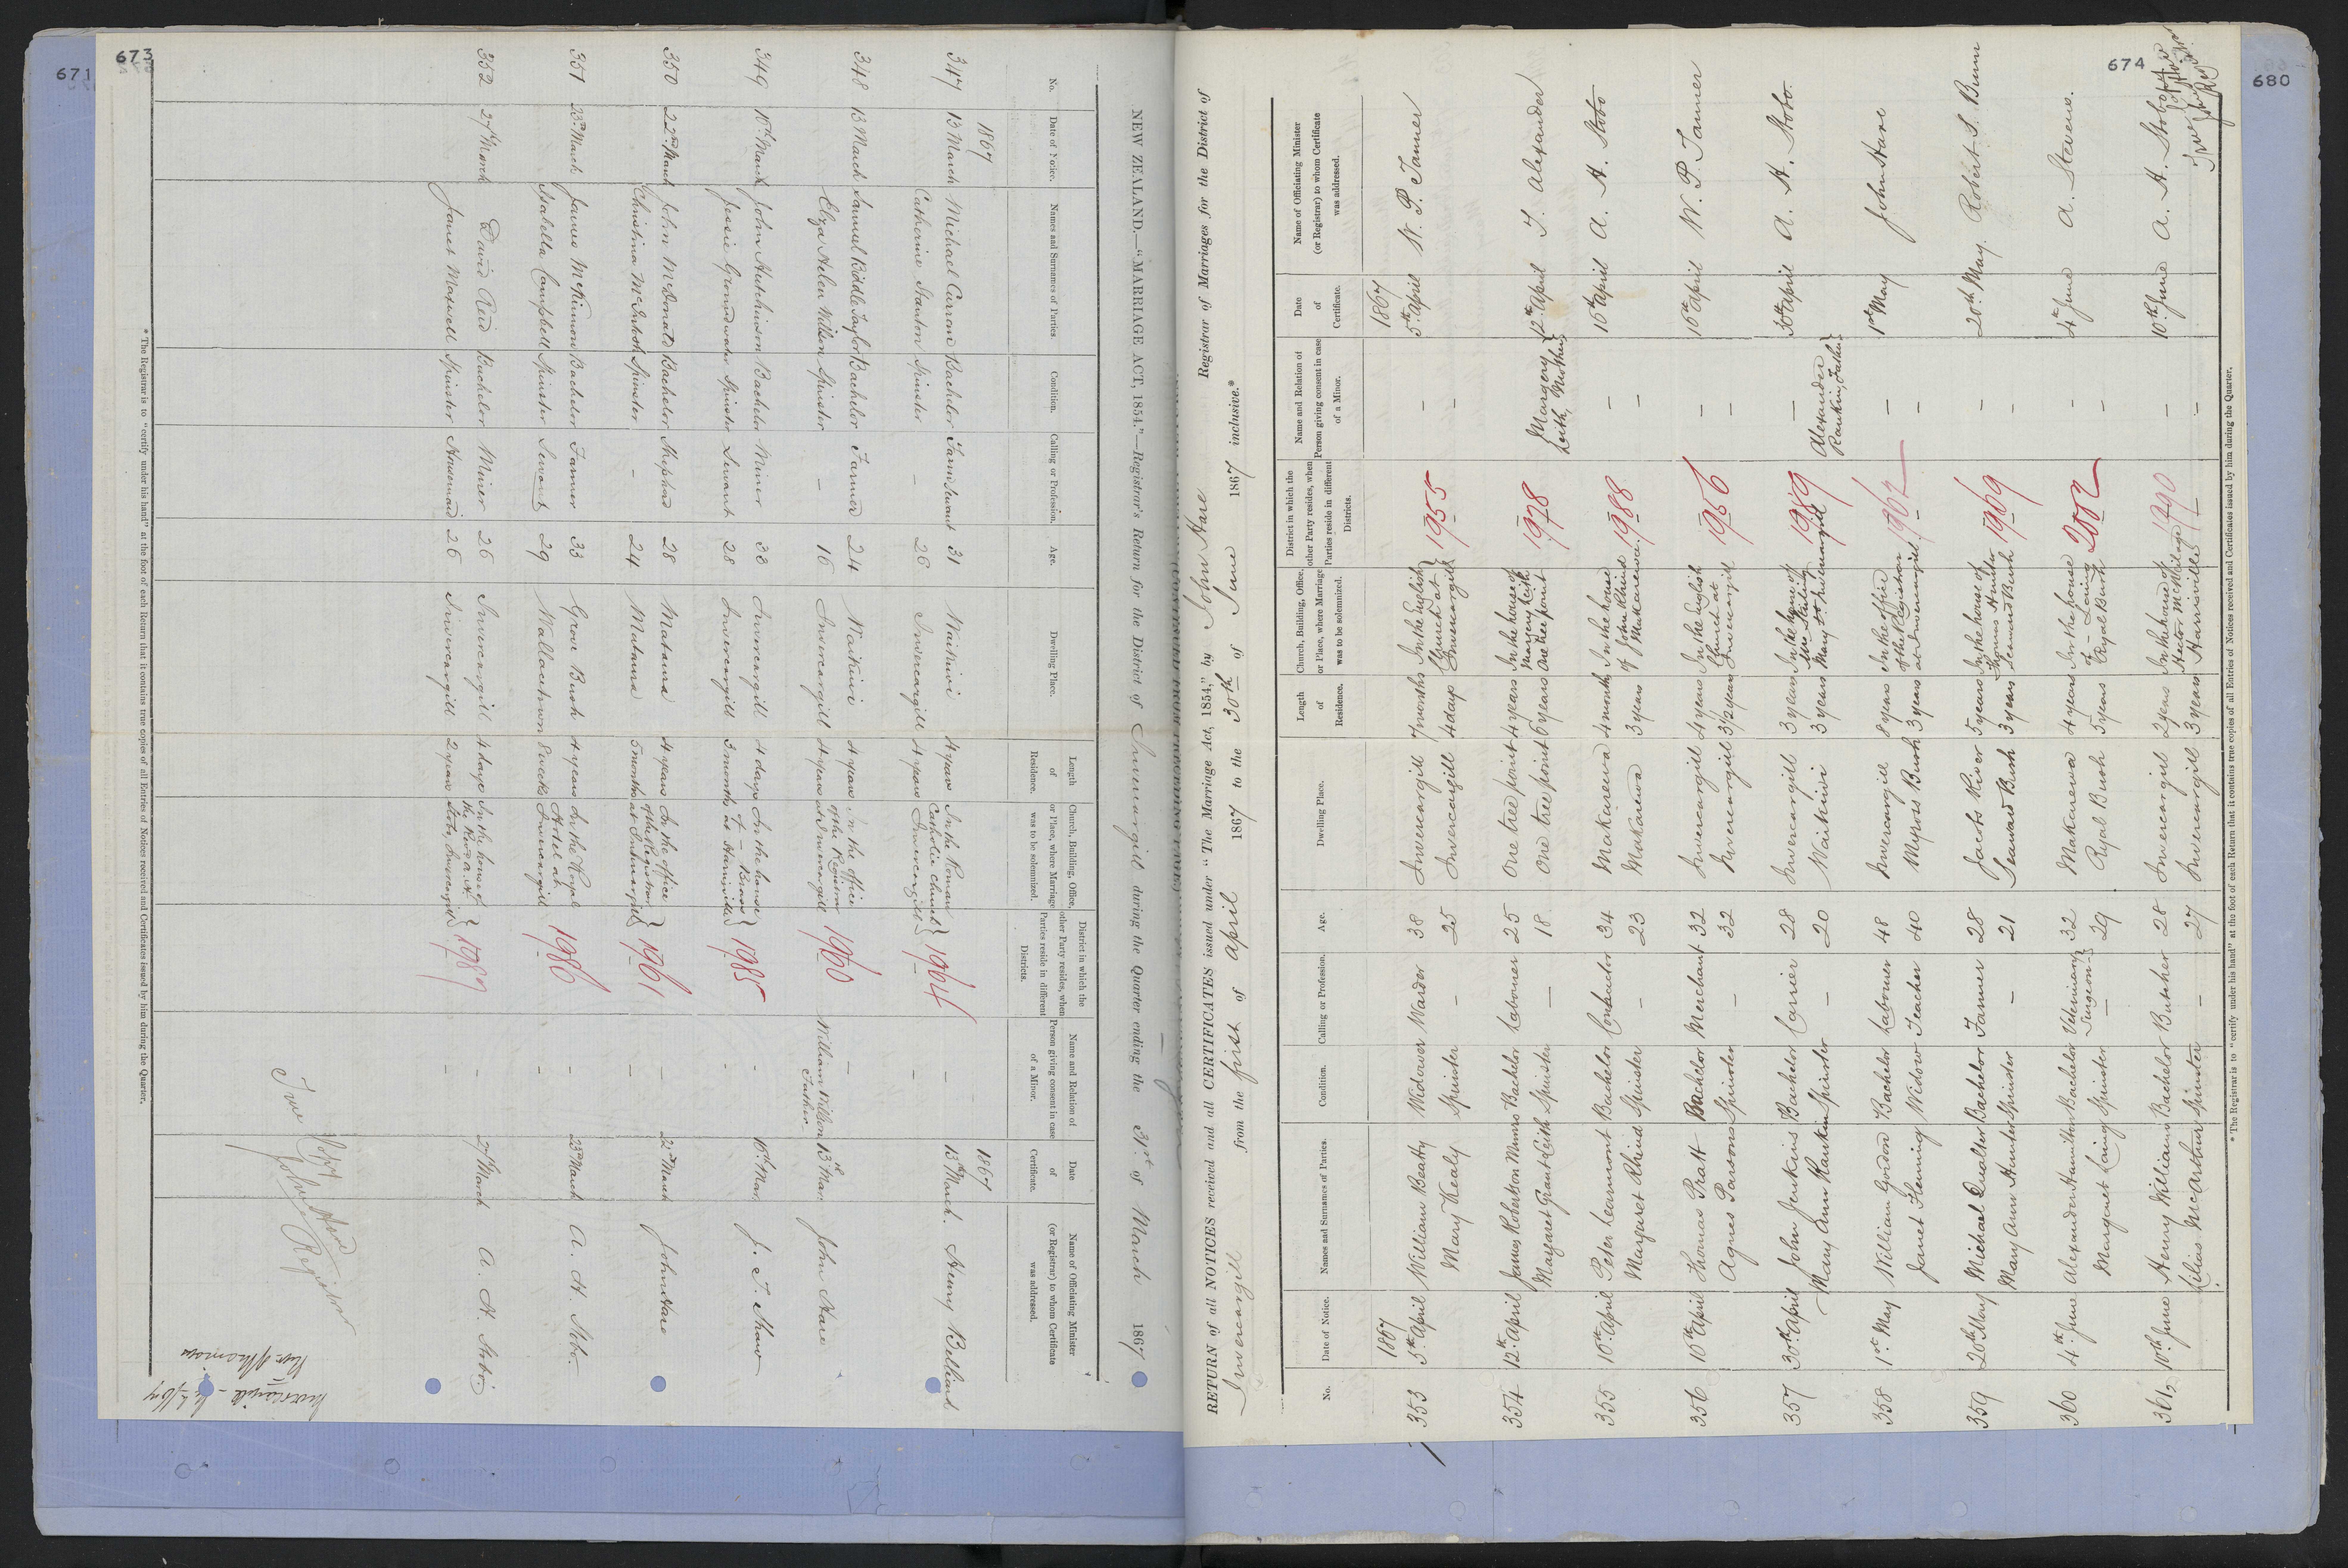 671
673
NEW ZEALAND.—"MARRIAGE ACT, 1854."—Registrar's Return for the District of Invercargill during the Quarter ending the 31st of March 1867
No.
Date of Notice.
Names and Surnames of Parties.
Condition.
Calling or Profession.
Age.
Dwelling Place.
Length of Residence.
Church, Building, Office, or Place, where Marriage was to be solemnized.
District in which the other Party resides, when Parties reside in different Districts.
Name and Relation of Person giving consent in case of a Minor.
Date of Certificate.
Name of Officiating Minister (or Registrar) to whom Certificate was addressed.
1867 1867
347 13 March Michael Curran Bachelor Farm Servant 31 Waikivi 4 years In the Roman 1964 – 13th March. Henry Belliard
Catherine Stanton Spinster – 26 Invercargill 4 years Catholic Church Invercargill –
348 13 March Samuel Biddle Taylor Bachelor Farmer 24 Waikivi 4 years in the office 1960 – 13th Mar. John Hare
Eliza Helen Willson Spinster – 16 Invercargill 4 years of the Registrar at Invercargill William Willson Father
349 16th March John Hutchinson Bachelor Miner 33 Invercargill 4 days In the house 1985 - 16th Mar. J. F. Shaw
Jessie Groundwater Spinster Servant 28 Invercargill 3 months of – Brown at Hainville -
350 22nd March John McDonald Bachelor Shepherd 28 Mataura 4 years In the office 1961 – 22nd March John Hare
Christina McIntosh Spinster – 24 Mataura 5 months of the Registrar at Invercargill –
351 23rd March James McKinnon Bachelor Farmer 33 Grove Bush 4 years In the Royal 1986 – 23rd March A. H. Stobo.
Isabella Campbell Spinster Servant 29 Wallacetown 8 weeks Hotel at Invercargill –
352 27th March David Reid Bachelor Miner 26 Invercargill 4 days In the house of 1987 – 27th March A. H. Stobo
Janet Maxwell Spinster Housemaid 26 Invercargill 2 years the Revd A. H. Stobo, Invercargill –
True Copy
John Hare
Registrar
* The Registrar is to "certify under his hand" at the foot of each Return that it contains true copies of all Entries of Notices received and Certificates issued by him during the Quarter.
674
680
RETURN of all NOTICES received and all CERTIFICATES issued under "The Marriage Act, 1854," by John Hare Registrar of Marriages for the District of
Invercargill from the first of April 1867 to the 30th of June 1867 inclusive.*
No.
Date of Notice.
Names and Surnames of Parties.
Condition.
Calling or Profession.
Age.
Dwelling Place.
Length of Residence.
Church, Building, Office, or Place, where Marriage was to be solemnized.
District in which the other Party resides, when Parties reside in different Districts.
Name and Relation of Person giving consent in case of a Minor.
Date of Certificate.
Name of Officiating Minister (or Registrar) to whom Certificate was addressed.
1867 1867
353 5th April William Beatty Widower Warder 38 Invercargill 7 months In the English 1955 – 5th April W. P. Tanner
Mary Kealy Spinster – 25 Invercargill 4 days Church at Invercargill –
354 12th April James Robertson Munro Bachelor Labourer 25 One tree point 4 years In the house of 1978 12th April T. Alexander
Margaret Grant Leith Spinster – 18 One tree point 6 years Margery Leith One tree point Margery Leith, Mother
355 16th April Peter Learmont Bachelor Contractor 34 Makarewa 4 months In the house 1988 – 16th April A. H. Stobo
Margaret Rhind Spinster – 23 Makarewa 3 years of John Rhind Makarewa. –
356 16th April Thomas Pratt Bachelor Merchant 32 Invercargill 4 years In the English 1956 – 16th April W. P. Tanner
Agnes Parsons Spinster – 32 Invercargill 3 1/2 years Church at Invercargill –
357 30th April John Jenkins Bachelor Carrier 28 Invercargill 3 years In the house of 1989 – 30th April A. H. Stobo.
Mary Ann Rankin Spinster – 20 Waikivi 3 years Mary St. Invercargill Alexander Rankin, Father
358 1st May William Gordon Bachelor Labourer 48 Invercargill 8 years In the office 1962 – 1st May John Hare
Janet Fleming Widow Teacher 40 Myross Bush 3 years of the Registrar at Invercargill –
359 20th May Michael Quolter Bachelor Farmer 28 Jacobs River 5 years In the house of 1969 – 20th May. Robert S. Bunn
Mary Ann Hunter Spinster – 21 Seaward Bush 3 years Thomas Hunter Seaward Bush –
360 4th June Alexander Hamilton Bachelor Veterinary Surgeon 32 Makarewa 4 years In the house 2002 – 4th June A. Stevens.
Margaret Laing Spinster – 29 Ryal Bush 5 years of – Laing Ryal Bush –
361 10th June Henry Williams Bachelor Butcher 28 Invercargill 2 years In the house of 1990 – 10th June A. H. Stobo
Lilias McArthur Spinster – 27 Invercargill 3 years Hector Harrisville –
* The Registrar is to "certify under his hand" at the foot of each Return that it contains true copies of all Entries of Notices received and Certificates issued by him during the Quarter.